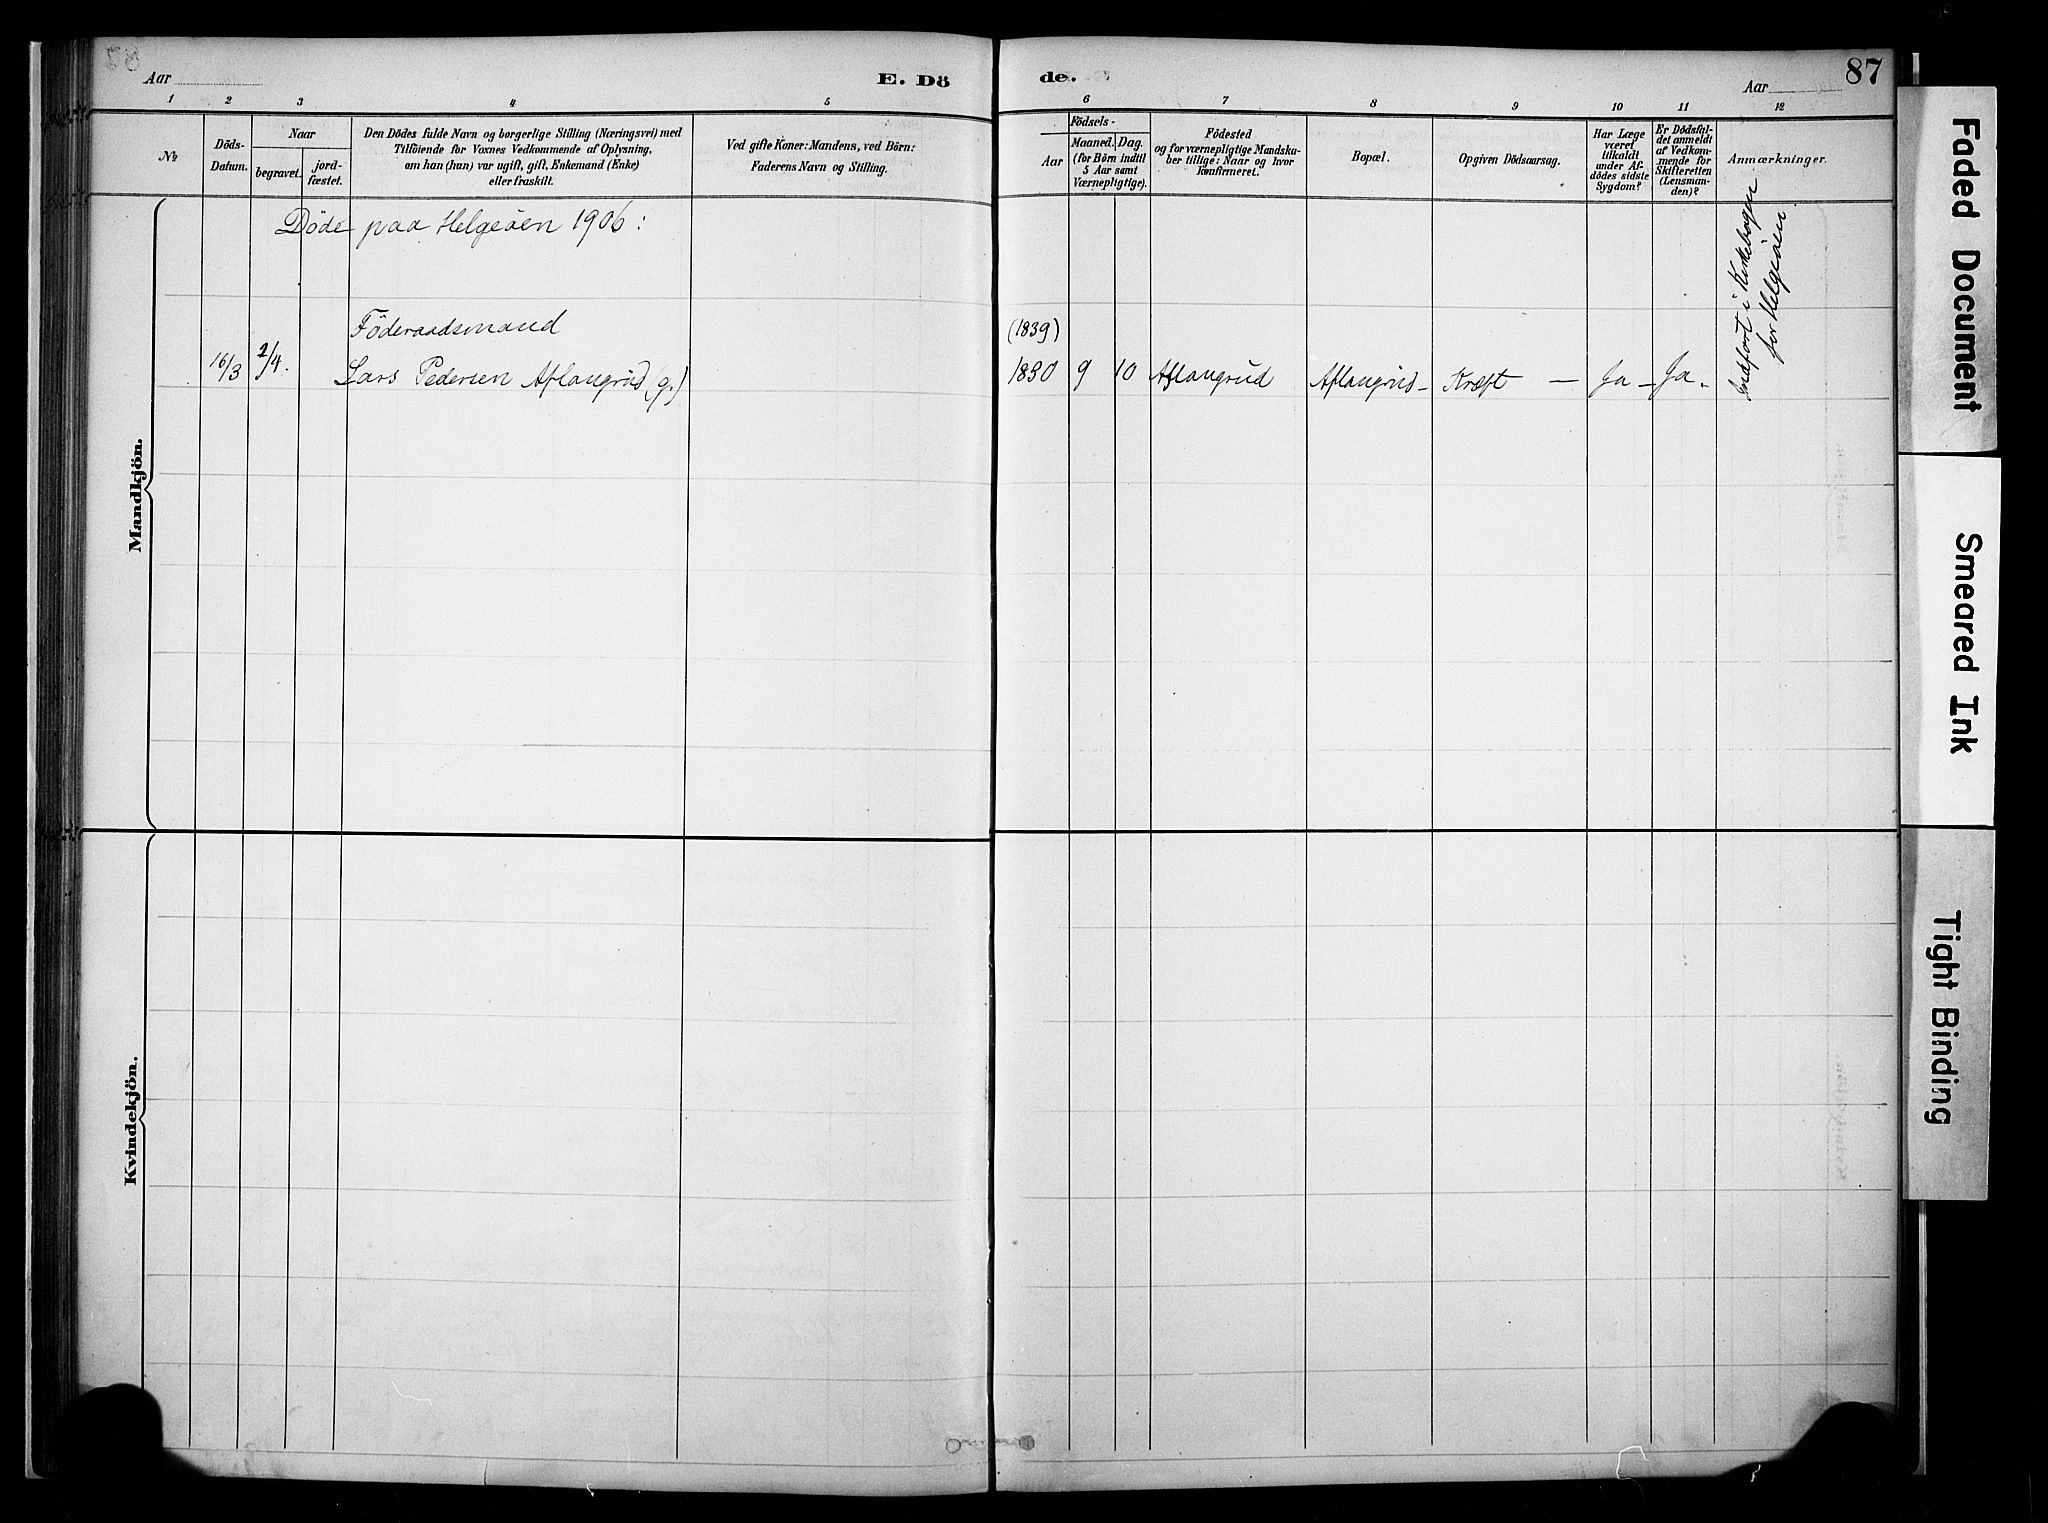 Aar
E. Dö
de.
Aar
87
1 2 3 4 5 6 7 8 9 10 11 12
№
Döds-
Datum.
Naar
begravet.
jord-
fæstet.
Den Dödes fulde Navn og borgerlige Stilling (Næringsvei) med
Tilföiende for Voxnes Vedkommende af Oplysning,
om han (hun) var ugift, gift, Enkemand (Enke)
eller fraskilt.
Ved gifte Koner: Mandens, ved Börn:
Faderens Navn og Stilling.
Födsels-
Aar
Maaned. Dag.
(for Börn indtil
5 Aar samt
Værnepligtige).
Födested
og for værnepligtige Mandska-
ber tillige: Naar og hvor
konfirmeret.
Bopæl.
Opgiven Dödsaarsag.
Har Læge
været
tilkaldt
under Af-
dödes sidste
Sygdom?
Er Dödsfal-
det anmeldt
af Vedkom-
mende for
Skifteretten
(Lensman-
den)?
Anmærkninger.
Mandkjön.
Døde paa Helgeöen 1906:
Föderaadsmand
(1839)
16/3 2/4. Lars Pedersen Aflangrud (g.) 1830 9 10 Aflangrud Aflangrud – Kræft — Ja – Ja –
Indfört i Kirkebogen
for Helgeöen
Kvindekjön.
Faded Document
Smeared Ink
Tight Binding